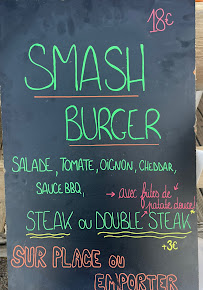 18€
SMASH
BURGER
SALADE, TOMATE, OIGNON, CHEDDAR,
SAUCE BBQ,
→ avec frites de
patate douce!
STEAK OU DOUBLE STEAK*
+3€
SUR PLACE OU
EMPORTER